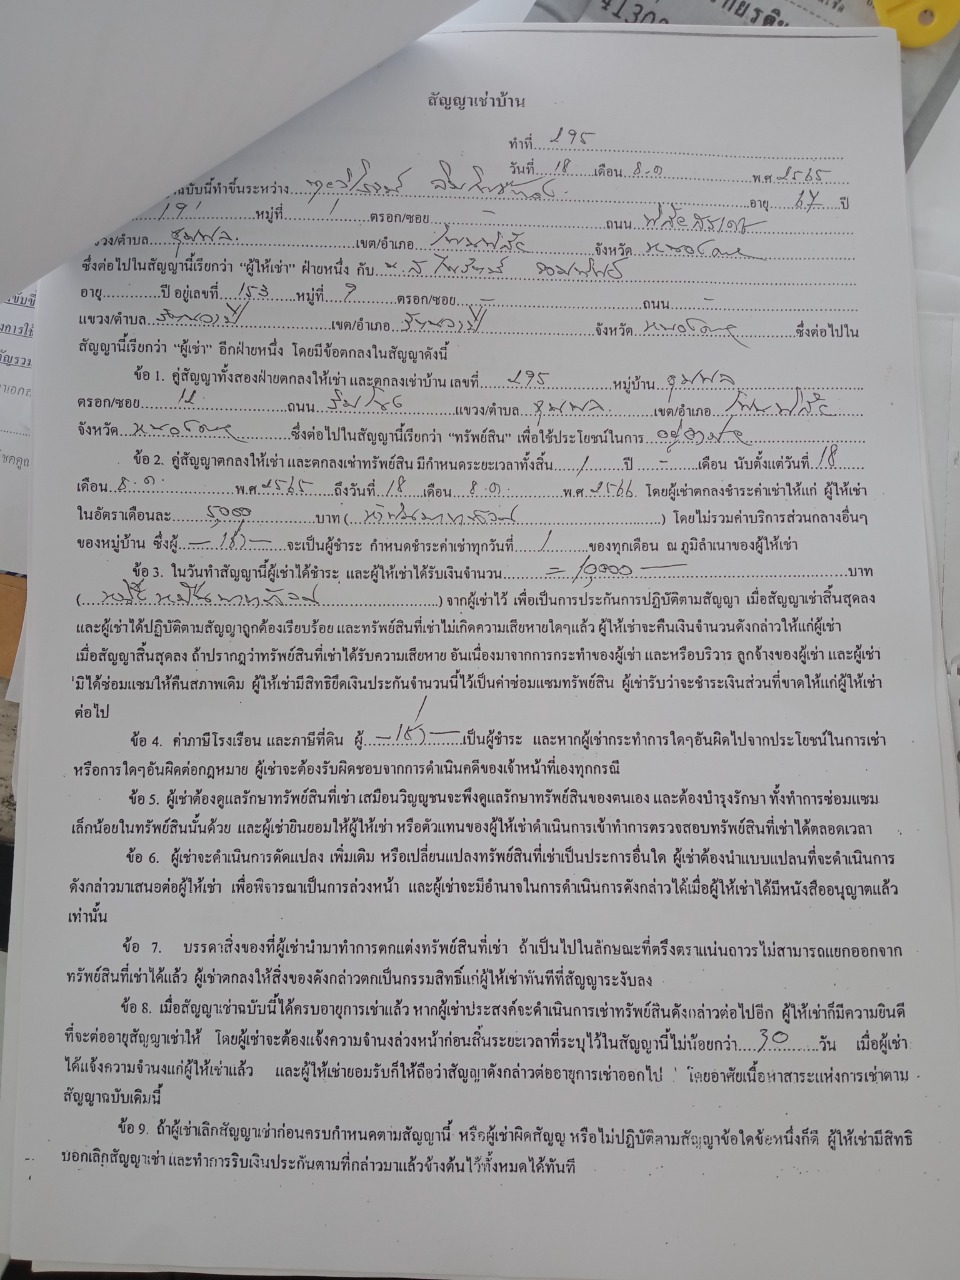 41300
สัญญาเช่าบ้าน
ทำที่ 295
วันที่ 18 เดือน ธ.ค. พ.ศ. 2565
ฉบับนี้ทำขึ้นระหว่าง อายุ 67 ปี
191 หมู่ที่ 1 ตรอก/ซอย - ถนน
แขวง/ตำบล ชุมพล เขต/อำเภอ โพนพิสัย จังหวัด หนองคาย
ซึ่งต่อไปในสัญญานี้เรียกว่า “ผู้ให้เช่า” ฝ่ายหนึ่ง กับ
อายุ ปี อยู่เลขที่ 153 หมู่ที่ 9 ตรอก/ซอย - ถนน -
แขวง/ตำบล รัตนวาปี เขต/อำเภอ รัตนวาปี จังหวัด หนองคาย ซึ่งต่อไปใน
สัญญานี้เรียกว่า “ผู้เช่า” อีกฝ่ายหนึ่ง โดยมีข้อตกลงในสัญญาดังนี้
ข้อ 1. คู่สัญญาทั้งสองฝ่ายตกลงให้เช่า และตกลงเช่าบ้าน เลขที่ 295 หมู่บ้าน ชุมพล
ตรอก/ซอย 12 ถนน ริมโขง แขวง/ตำบล ชุมพล เขต/อำเภอ โพนพิสัย
จังหวัด หนองคาย ซึ่งต่อไปในสัญญานี้เรียกว่า “ทรัพย์สิน” เพื่อใช้ประโยชน์ในการ อยู่อาศัย
ข้อ 2. คู่สัญญาตกลงให้เช่า และตกลงเช่าทรัพย์สิน มีกำหนดระยะเวลาทั้งสิ้น 1 ปี - เดือน นับตั้งแต่วันที่ 18
เดือน ธ.ค. พ.ศ. 2565 ถึงวันที่ 18 เดือน ธ.ค. พ.ศ. 2566 โดยผู้เช่าตกลงชำระค่าเช่าให้แก่ ผู้ให้เช่า
ในอัตราเดือนละ 5,000 บาท ( ห้าพันบาทถ้วน ) โดยไม่รวมค่าบริการส่วนกลางอื่นๆ
ของหมู่บ้าน ซึ่งผู้ - เช่า - จะเป็นผู้ชำระ กำหนดชำระค่าเช่าทุกวันที่ 1 ของทุกเดือน ณ ภูมิลำเนาของผู้ให้เช่า
ข้อ 3. ในวันทำสัญญานี้ผู้เช่าได้ชำระ และผู้ให้เช่าได้รับเงินจำนวน = 10,000 - บาท
( หนึ่งหมื่นบาทถ้วน ) จากผู้เช่าไว้ เพื่อเป็นการประกันการปฏิบัติตามสัญญา เมื่อสัญญาเช่าสิ้นสุดลง
และผู้เช่าได้ปฏิบัติตามสัญญาถูกต้องเรียบร้อย และทรัพย์สินที่เช่าไม่เกิดความเสียหายใดๆแล้ว ผู้ให้เช่าจะคืนเงินจำนวนดังกล่าวให้แก่ผู้เช่า
เมื่อสัญญาสิ้นสุดลง ถ้าปรากฏว่าทรัพย์สินที่เช่าได้รับความเสียหาย อันเนื่องมาจากการกระทำของผู้เช่า และหรือบริวาร ลูกจ้างของผู้เช่า และผู้เช่า
มิได้ซ่อมแซมให้คืนสภาพเดิม ผู้ให้เช่ามีสิทธิยึดเงินประกันจำนวนนี้ไว้เป็นค่าซ่อมแซมทรัพย์สิน ผู้เช่ารับว่าจะชำระเงินส่วนที่ขาดให้แก่ผู้ให้เช่า
ต่อไป
ข้อ 4. ค่าภาษีโรงเรือน และภาษีที่ดิน ผู้ - เช่า - เป็นผู้ชำระ และหากผู้เช่ากระทำการใดๆอันผิดไปจากประโยชน์ในการเช่า
หรือการใดๆอันผิดต่อกฎหมาย ผู้เช่าจะต้องรับผิดชอบจากการดำเนินคดีของเจ้าหน้าที่เองทุกกรณี
ข้อ 5. ผู้เช่าต้องดูแลรักษาทรัพย์สินที่เช่า เสมือนวิญญูชนจะพึงดูแลรักษาทรัพย์สินของตนเอง และต้องบำรุงรักษา ทั้งทำการซ่อมแซม
เล็กน้อยในทรัพย์สินนั้นด้วย และผู้เช่ายินยอมให้ผู้ให้เช่า หรือตัวแทนของผู้ให้เช่าดำเนินการเข้าทำการตรวจสอบทรัพย์สินที่เช่าได้ตลอดเวลา
ข้อ 6. ผู้เช่าจะดำเนินการดัดแปลง เพิ่มเติม หรือเปลี่ยนแปลงทรัพย์สินที่เช่าเป็นประการอื่นใด ผู้เช่าต้องนำแบบแปลนที่จะดำเนินการ
ดังกล่าวมาเสนอต่อผู้ให้เช่า เพื่อพิจารณาเป็นการล่วงหน้า และผู้เช่าจะมีอำนาจในการดำเนินการดังกล่าวได้เมื่อผู้ให้เช่าได้มีหนังสืออนุญาตแล้ว
เท่านั้น
ข้อ 7. บรรดาสิ่งของที่ผู้เช่านำมาทำการตกแต่งทรัพย์สินที่เช่า ถ้าเป็นไปในลักษณะที่ตรึงตราแน่นถาวรไม่สามารถแยกออกจาก
ทรัพย์สินที่เช่าได้แล้ว ผู้เช่าตกลงให้สิ่งของดังกล่าวตกเป็นกรรมสิทธิ์แก่ผู้ให้เช่าทันทีที่สัญญาระงับลง
ข้อ 8. เมื่อสัญญาเช่าฉบับนี้ได้ครบอายุการเช่าแล้ว หากผู้เช่าประสงค์จะดำเนินการเช่าทรัพย์สินดังกล่าวต่อไปอีก ผู้ให้เช่าก็มีความยินดี
ที่จะต่ออายุสัญญาเช่าให้ โดยผู้เช่าจะต้องแจ้งความจำนงล่วงหน้าก่อนสิ้นระยะเวลาที่ระบุไว้ในสัญญานี้ไม่น้อยกว่า 30 วัน เมื่อผู้เช่า
ได้แจ้งความจำนงแก่ผู้ให้เช่าแล้ว และผู้ให้เช่ายอมรับก็ให้ถือว่าสัญญาดังกล่าวต่ออายุการเช่าออกไป โดยอาศัยเนื้อหาสาระแห่งการเช่าตาม
สัญญาฉบับเดิมนี้
ข้อ 9. ถ้าผู้เช่าเลิกสัญญาเช่าก่อนครบกำหนดตามสัญญานี้ หรือผู้เช่าผิดสัญญา หรือไม่ปฏิบัติตามสัญญาข้อใดข้อหนึ่งก็ดี ผู้ให้เช่ามีสิทธิ
บอกเลิกสัญญาเช่า และทำการริบเงินประกันตามที่กล่าวมาแล้วข้างต้นไว้ทั้งหมดได้ทันที